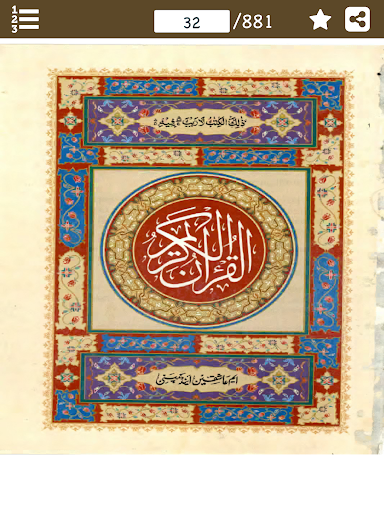 1
2
3
32 /881
ذٰلِكَ الْكِتٰبُ لَا رَيْبَ ۛ فِيْهِ ۛ
القرآن الكريم
ایم عاشقین اینڈ کمپنی